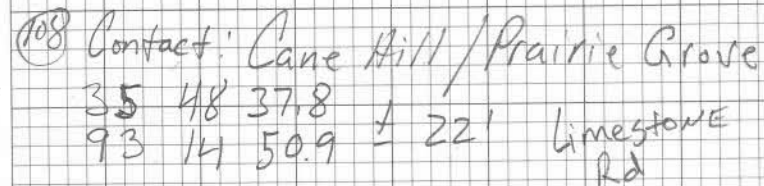 108 Contact: Cane Hill / Prairie Grove
35 48 37.8
93 14 50.9 ± 22' Limestone
Rd